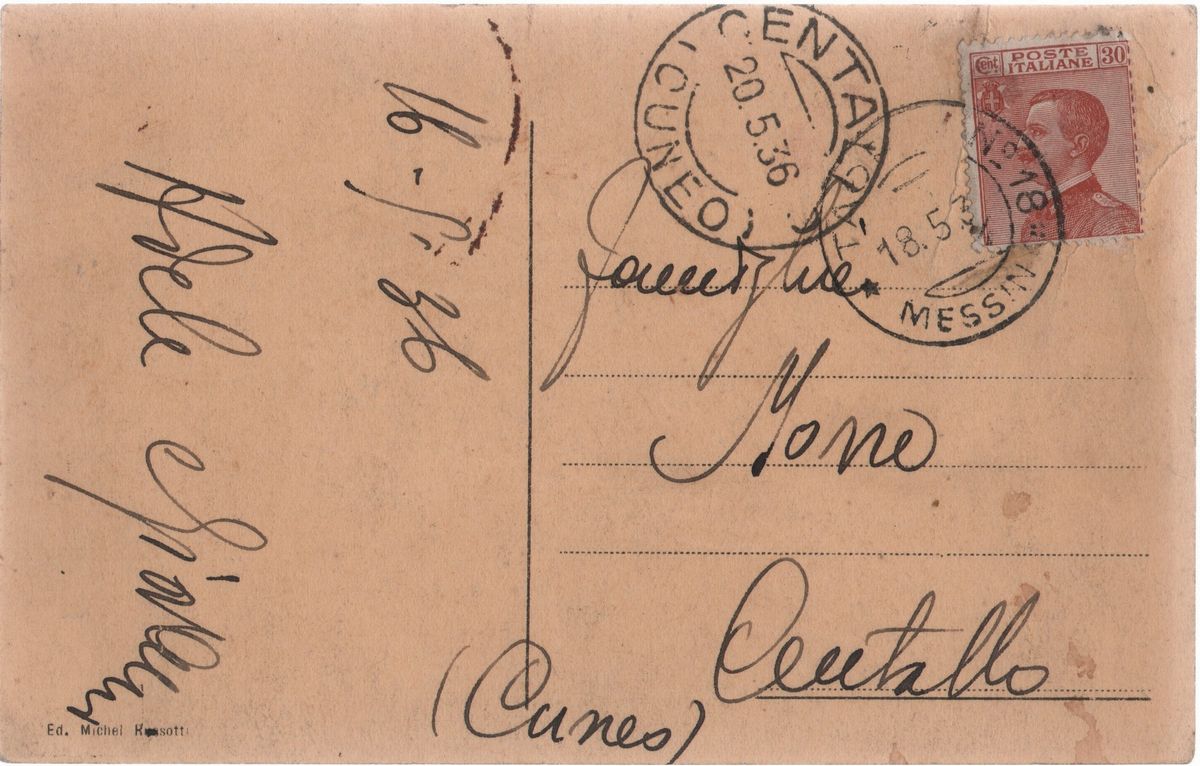 16-5-36
Adele
CENTALLO
(CUNEO)
20.5.36
Cent
POSTE
ITALIANE
30
Nº 18
18.5
MESSIN
Famiglia
Centallo
(Cuneo)
Ed. Michel Russotti